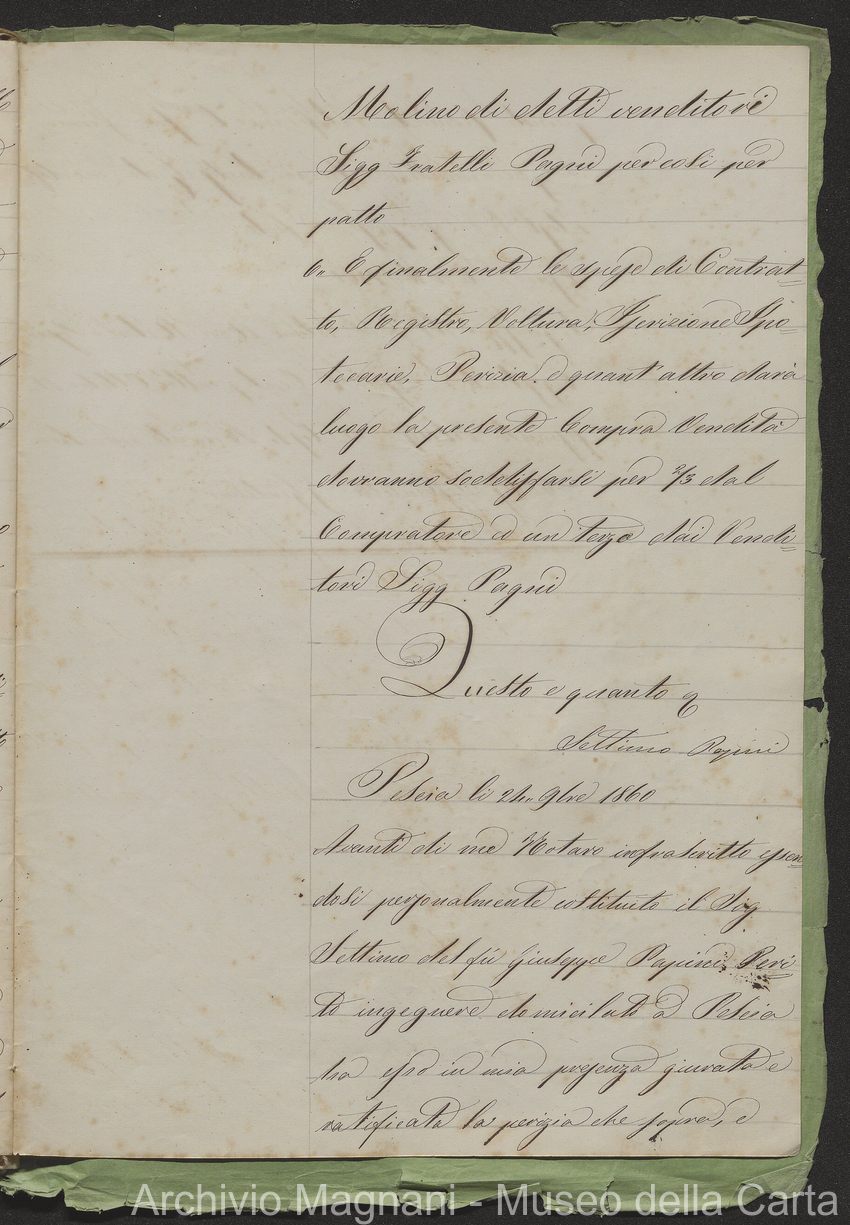 Molino di detti venditori
Sigg Fratelli Pagni per cosi per
patto
6,, E finalmente le spese di Contrat=
to, Registro, Voltura, Iscrizione Ipo=
tecarie, Perizia e quant'altro darà
luogo la presente Compra Vendita
dovranno sodisffarsi per 2/3 dal
Compratore ed un terzo dai Vendi=
tori Sigg Pagni
Questo e quanto &
Settimo Papini
Pescia li 24,, 9bre 1860
Avanti di me Notaro infrascritto essen=
dosi personalmente costituito il Sig
Settimo del fù Giuseppe Papini Peri
to ingegnere domiciliato a Pescia
ha esso in mia presenza giurata e
ratificata la perizia che sopra, e
Archivio Magnani - Museo della Carta